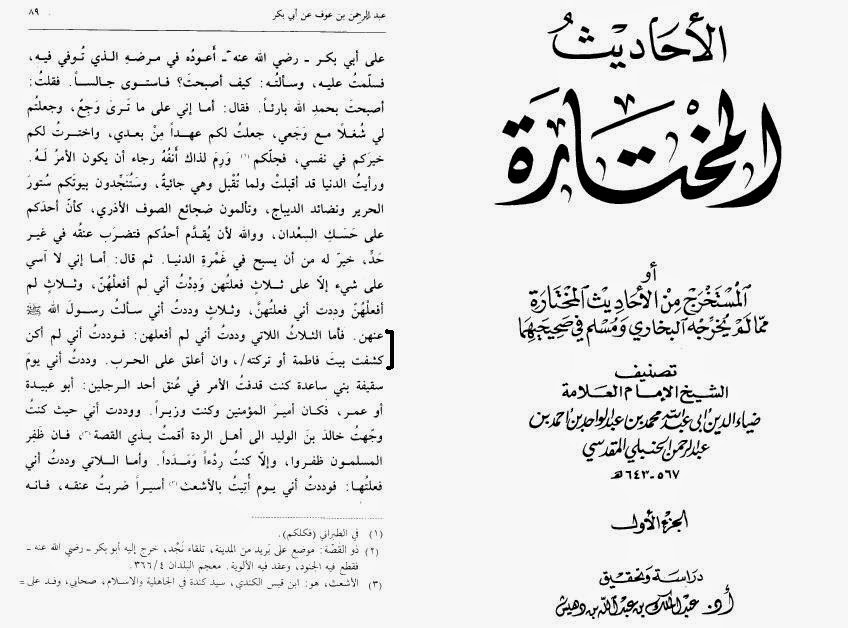 الأحاديث
المختارة
أو
المستخرج من الأحاديث المختارة
مما لم يخرجه البخاري ومسلم في صحيحيهما
تصنيف
الشيخ الإمام العلامة
ضياء الدين أبي عبد الله محمد بن عبد الواحد بن احمد بن
عبد الرحمن الحنبلي المقدسي
٥٦٧ - ٦٤٣ هـ
الجزء الأول
دراسة وتحقيق
أ.د. عبد الملك بن عبد الله بن دهيش
عبد الرحمن بن عوف عن أبي بكر ٨٩
على أبي بكر ـ رضي الله عنه ـ أَعودُه في مرضهِ الذي تُوفي فيه،
فسلّمتُ عليه، وسألتُه: كيف أصبحتَ؟ فاستوى جالساً. فقلتُ:
أصبحتَ بحمدِ الله بارئاً. فقال: أما إني على ما تَرىَ وَجِعٌ، وجعلتُم
لي شُغلاً مع وَجَعي، جعلتُ لكم عهداً مِنْ بعدي، واخترتُ لكم
خيرَكم في نفسي، فجلّكم(١) وَرِمَ لذاك أنفُهُ رجاء أن يكون الأمرُ لَهُ.
ورأيتُ الدنيا قد أقبلتْ ولما تُقْبل وهي جائيةٌ، وسَتُنَجِّدون بيوتكم ستُورَ
الحرير ونضائد الديباج، وتألمون ضجائع الصوف الأذري، كأنّ أحدَكم
على حَسَكِ السعْدان، ووالله لأن يُقدَّم أحدُكم فتضرَب عنقُه في غير
حَدِّ، خيرٌ له من أن يسبح في غَمْرةِ الدنيا. ثم قال: أما إني لا آسي
على شيء إلاّ على ثلاثٍ فعلتُهن وَدِدْتُ أني لم أفعلْهُنّ، وثلاثٍ لم
أفعلْهُنّ وددت أني فعلتهنَّ، وثلاثٍ وددتُ أني سألتُ رسولَ الله ﷺ
عنهن. فأما الثلاثُ اللاتي وددتُ أني لم أفعلهن: فوددتُ أني لم أكن
كشفت بيتَ فاطمة أو تركته/، وان أعلق على الحرب. وددتُ أني يومَ
سقيفة بني ساعدة كنت قدفتُ الأمر في عُنق أحد الرجلين: أبو عبيدة
أو عمر، فكان أميرَ المؤمنين وكنت وزيراً. ووددت أني حيث كنتُ
وجّهتُ خالدَ بنَ الوليد الى أهل الردة أقمتُ بذي القصة(٢)، فان ظفِر
المسلمون ظفروا، وإلّا كنتُ رِدْءاً وَمَدَداً. وأما اللاتي وددتُ أني
فعلتُها: فوددتُ أني يوم أُتِيتُ بالأشعث(٣) أسيراً ضربتُ عنقه، فانه
(١) في الطبراني (فكلكم).
(٢) ذو القَصّة: موضع على بَريد من المدينة، تلقاء نَجْد، خرج إليه أبو بكر ـ رضي الله عنه ـ
فقطع فيه الجنود، وعقد فيه الألوية. معجم البلدان ٣٦٦/٤.
(٣) الأشعث، هو: ابن قيس الكندي، سيد كندة في الجاهلية والاسلام، صحابي، وفد على =